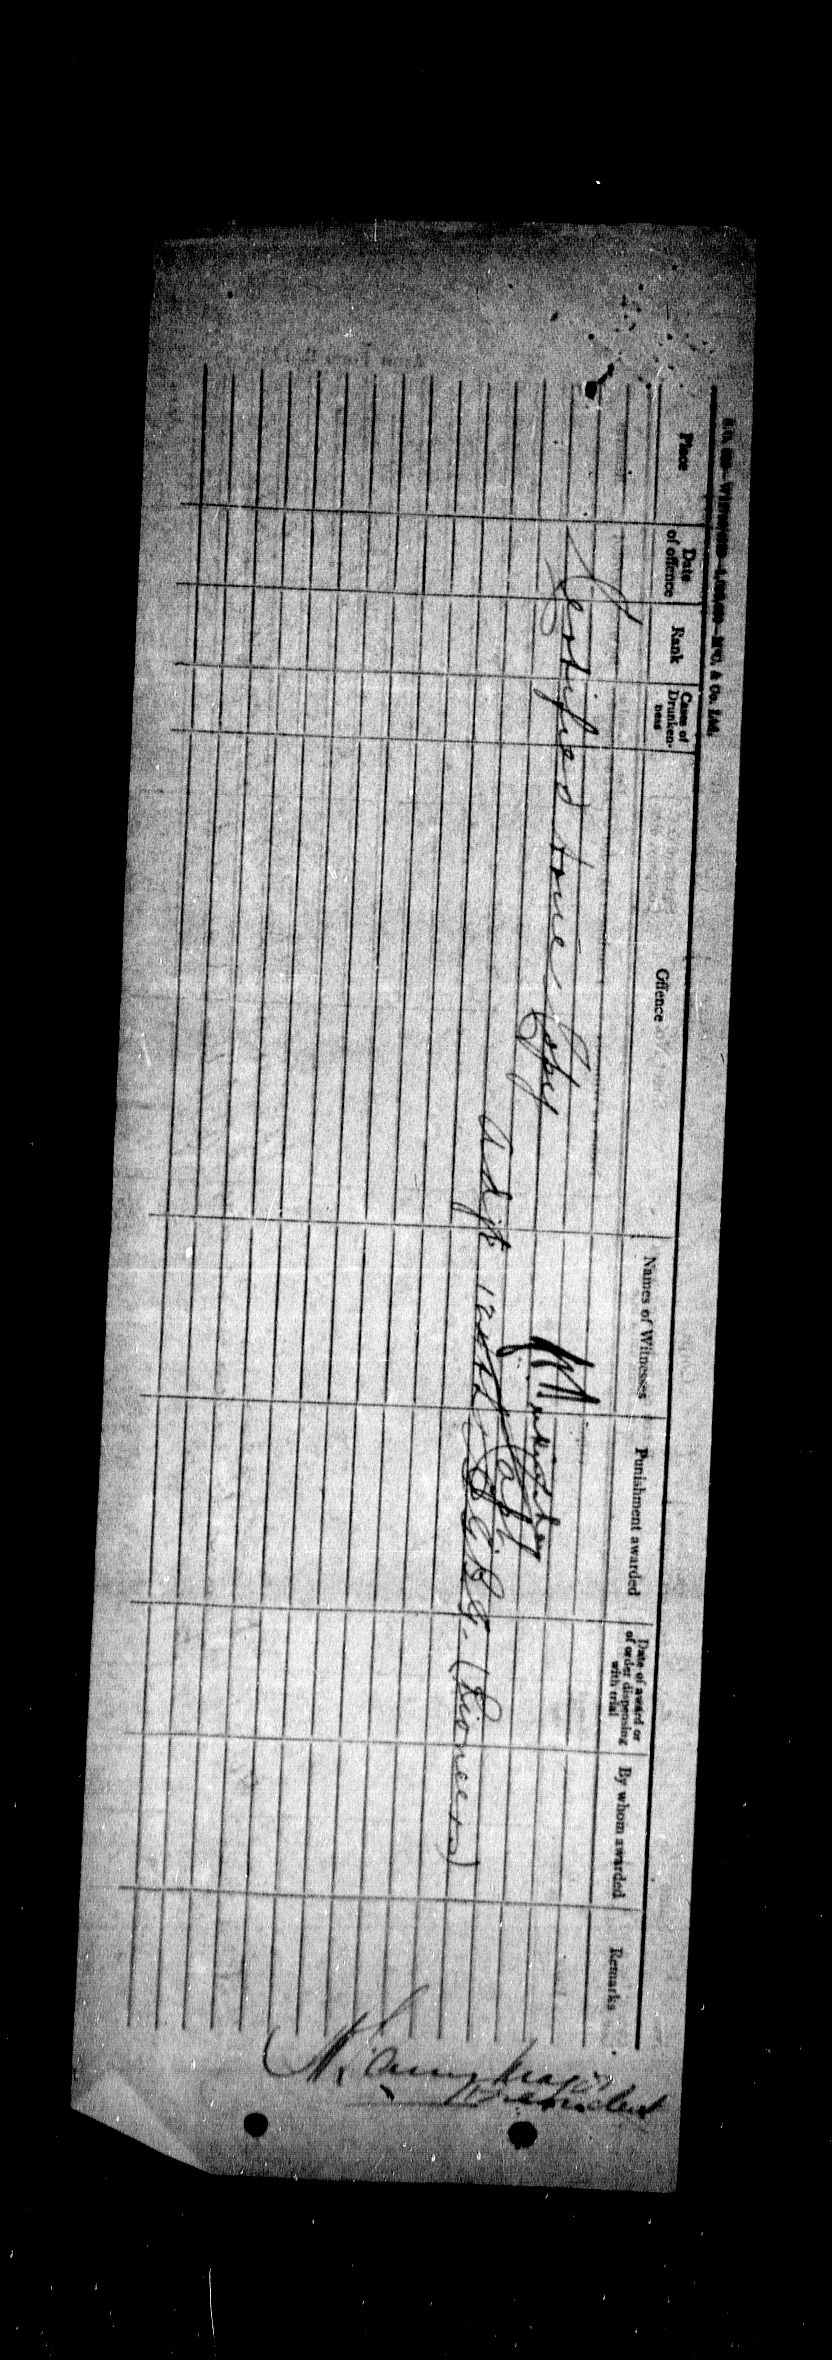 Place
Date of offence
Rank
Case of Drunkenness
Offence
Names of Witnesses
Punishment awarded
Date of award or of order dispensing with trial
By whom awarded
Remarks
Certified true Copy
Capt
Adjt 124th (Pioneers)
Major
President